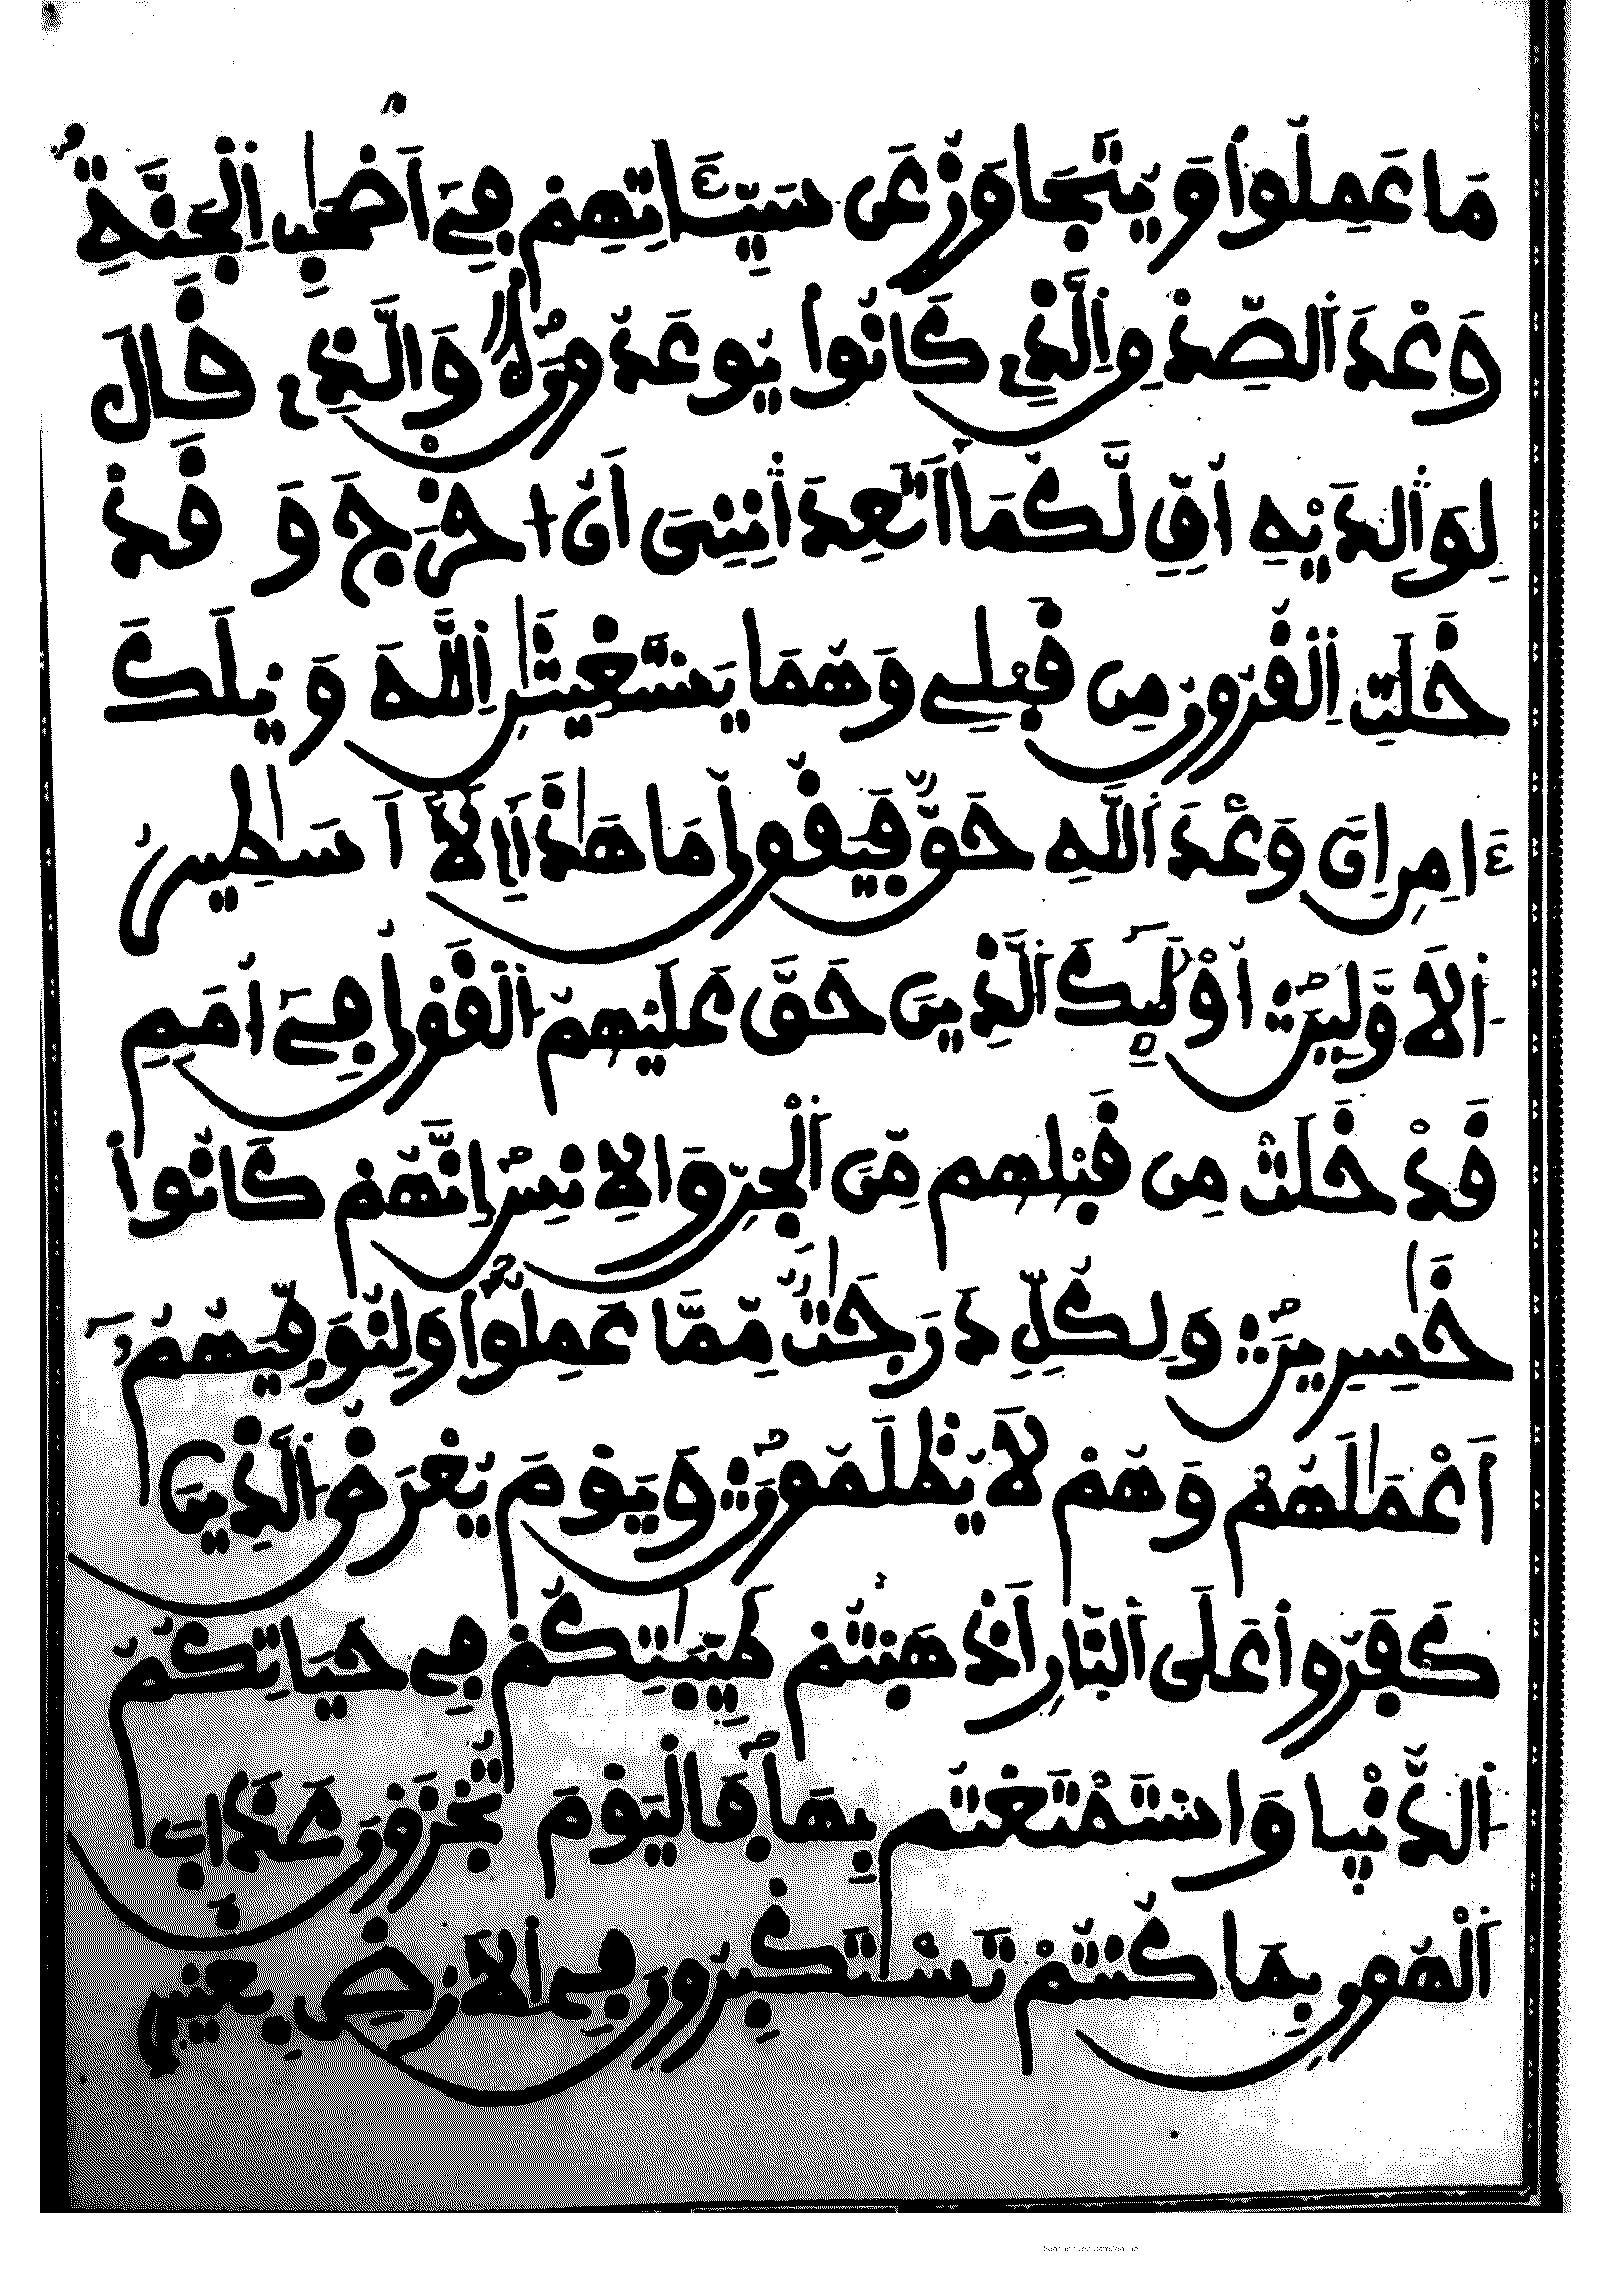 مَا عَمِلُواْ وَيُتَجَاوَزُ عَن سَيِّـَٔاتِهِمْ فِےٓ أَصْحَٰبِ اِ۬لْجَنَّةِ
وَعْدَ اَ۬لصِّدْقِ اِ۬لذِے كَانُواْ يُوعَدُونَ وَالذِے قَالَ
لِوَٰلِدَيْهِ أُفٍّ لَّكُمَآ أَتَعِدَٰنِنِىٓ أَنُ ا۟خْرَجَ وَقَدْ
خَلَتِ اِ۬لْقُرُونُ مِن قَبْلِے وَهُمَا يَسْتَغِيثَٰنِ اِ۬للَّهَ وَيْلَكَ
ءَامِنِ اِنَّ وَعْدَ اَ۬للَّهِ حَقٌّ فَيَقُولُ مَا هَٰذَآ إِلَّآ أَسَٰطِيرُ
اُ۬لَاوَّلِينَ أُوْلَٰٓئِكَ اَ۬لذِينَ حَقَّ عَلَيْهِمُ اُ۬لْقَوْلُ فِےٓ أُمَمٍ
قَدْ خَلَتْ مِن قَبْلِهِم مِّنَ اَ۬لْجِنِّ وَالِانسِ إِنَّهُمْ كَانُواْ
خَٰسِرِينَ وَلِكُلٍّ دَرَجَٰتٌ مِّمَّا عَمِلُواْ وَلِنُوَفِّيَهُمُۥٓ
أَعْمَٰلَهُمْ وَهُمْ لَا يُظْلَمُونَ وَيَوْمَ يُعْرَضُ اُ۬لذِينَ
كَفَرُواْ عَلَى اَ۬لنّارِ أَذْهَبْتُمْ طَيِّبَٰتِكُمْ فِے حَيَاتِكُمُ
اُ۬لدُّنْيا وَاسْتَمْتَعْتُم بِهَا فَالْيَوْمَ تُجْزَوْنَ عَذَابَ
اَ۬لْهُونِ بِمَا كُنتُمْ تَسْتَكْبِرُونَ فِے اِ۬لَارْضِ بِغَيْرِ